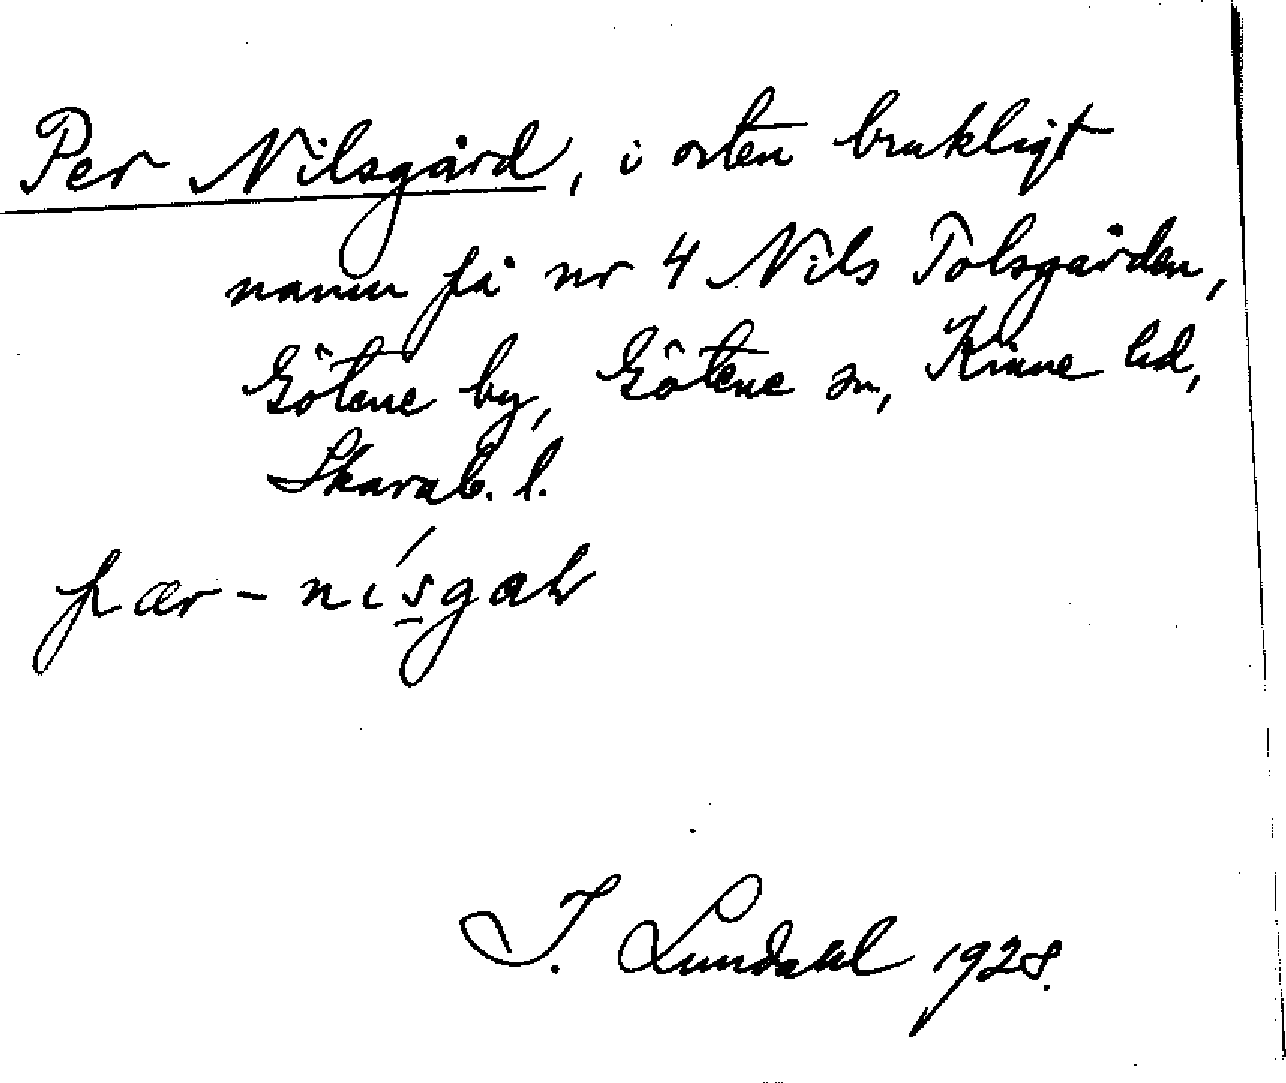 Per Nilsgård, i orten brukligt
namn på nr 4 Nils Tolsgården,
Götene by, Götene sn, Kinne hd,
Skarab. l.
pær-nísgaḷ
I. Lundahl 1928.